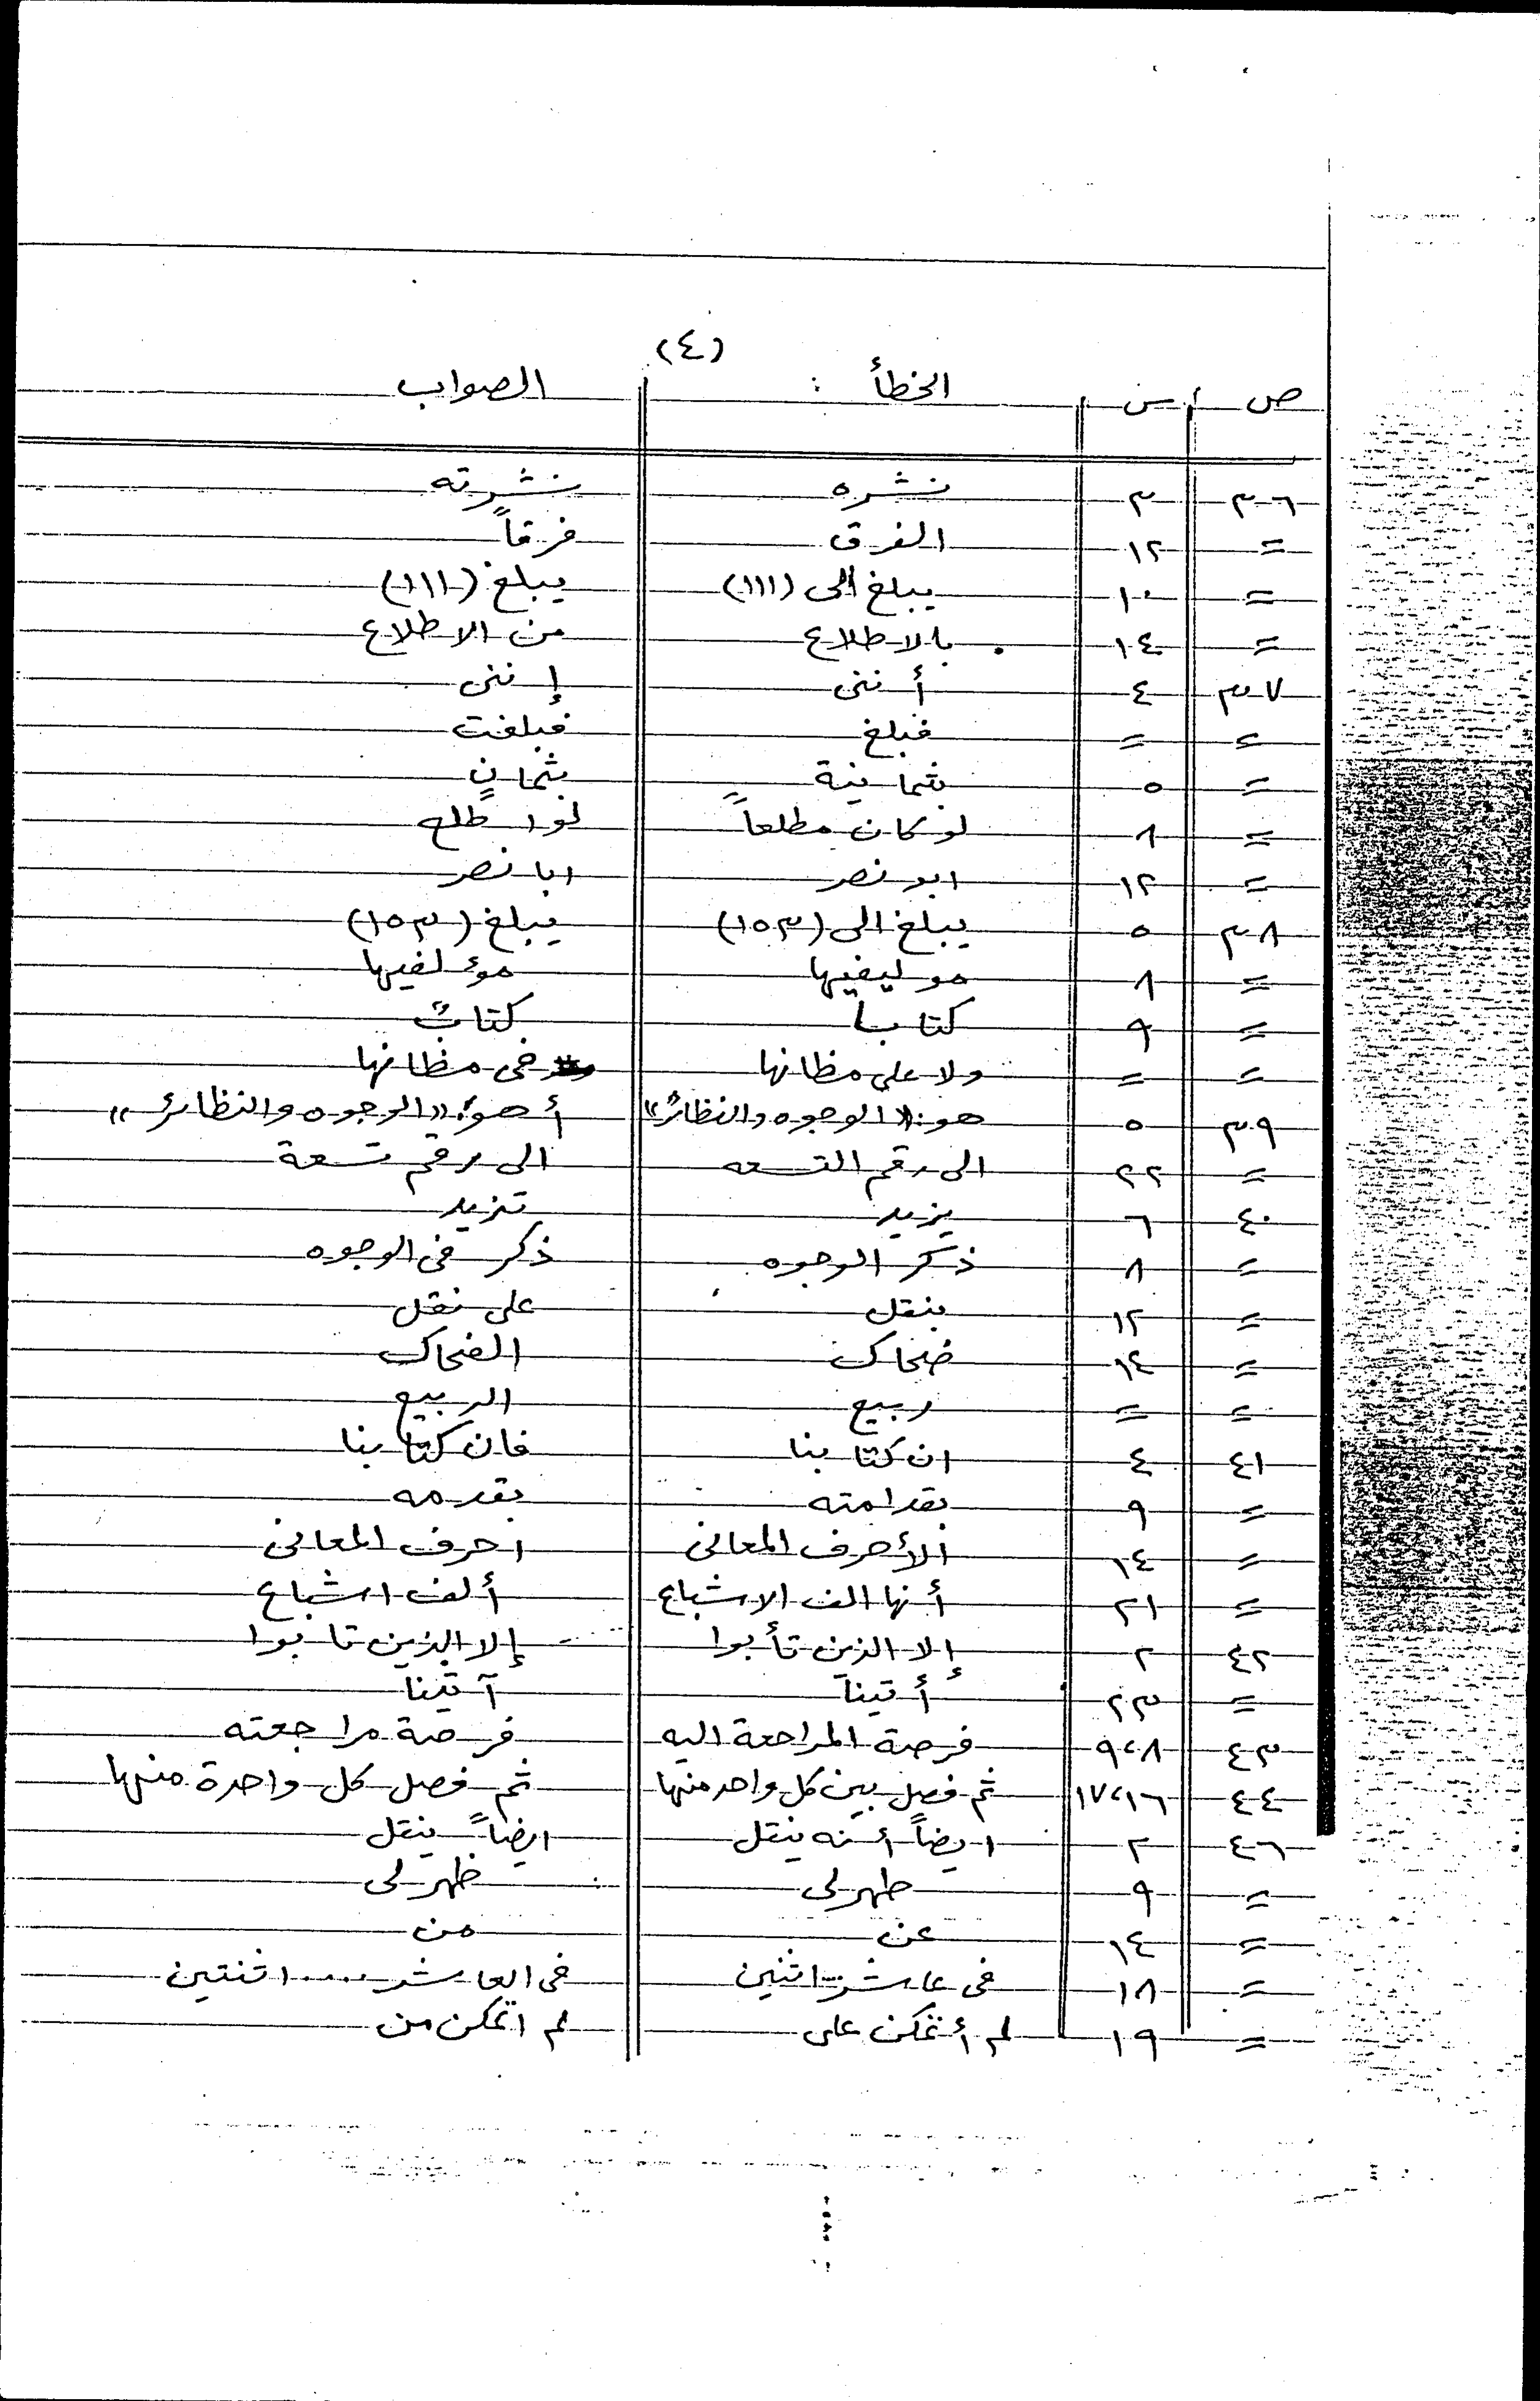 (٤)
ص س الخطأ : الصواب
٣٦ ٣ نشره نشرته
= ١٢ الفرق فرقاً
= ١٠ يبلغ الى (١١١) يبلغ (١١١)
= ١٤ بالاطلاع من الاطلاع
٣٧ ٤ أننى إننى
= = فبلغ فبلغت
= ٥ بثمانيةٍ بثمانٍ
= ٨ لو كان مطلعاً لو اطلع
= ١٢ ابو نصر ابا نصر
٣٨ ٥ يبلغ الى (١٥٣) يبلغ (١٥٣)
= ٨ موليفيها مؤلفيها
= ٩ كتابا كتابٌ
= = ولا على مظانها فى مظانها
٣٩ ٥ هو: «الوجوه والنظائر» أهو: «الوجوه والنظائر»
= ٢٢ الى رقم التسعه الى رقم تسعة
٤٠ ٦ يزيد تزيد
= ٨ ذكر الوجوه ذكر فى الوجوه
= ١٢ بنقل على نقل
= ١٤ ضحاك الضحاك
= = ربيع الربيع
٤١ ٤ ان كتابنا فان كتابنا
= ٩ بقدامته بقدمه
= ١٤ الأحرف المعانى احرف المعانى
= ٢١ أنها الف الاشباع ألف اشباع
٤٢ ٢ إلا الذين تأبوا إلا الذين تابوا
= ٢٣ أتينا آتينا
٤٣ ٩،٨ فرصة المراجعة اليه فرصة مراجعته
٤٤ ١٧،١٦ ثم فصل بين كل واحد منها ثم فصل كل واحدة منها
٤٦ ٢ ايضاً أنه ينقل ايضاً ينقل
= ٩ طهرلى ظهرلى
= ١٤ عن من
= ١٨ فى عاشر... اثنين فى العاشر .... اثنتين
= ١٩ لم أتمكن على لم اتمكن من